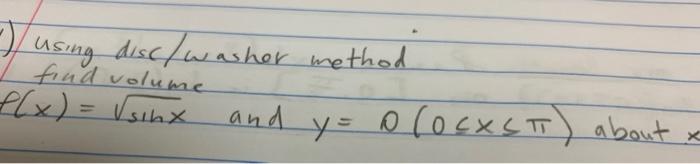 ) using disc/washer method
find volume
f(x) = √sinx and y = 0 (0 ≤ x ≤ π) about x